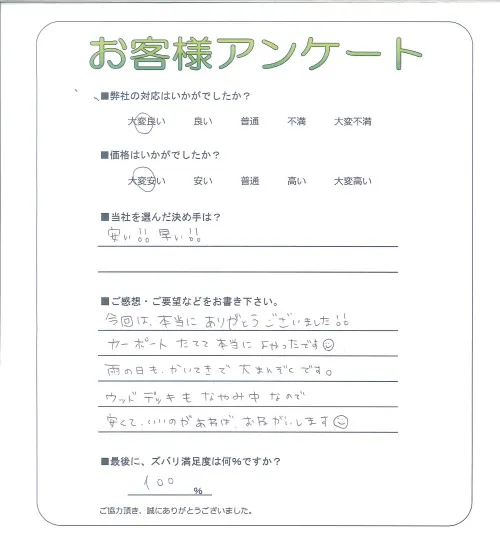 お客様アンケート
■弊社の対応はいかがでしたか？
大変良い 良い 普通 不満 大変不満
■価格はいかがでしたか？
大変安い 安い 普通 高い 大変高い
■当社を選んだ決め手は？
安い!! 早い!!
■ご感想・ご要望などをお書き下さい。
今回は、本当に ありがとう ございました!!
カーポート たてて 本当に よかったです☺
雨の日も、かいてきで 大まんぞくです。
ウッド デッキも なやみ中 なので
安くて、いいのがあれば、おねがいします☺
■最後に、ズバリ満足度は何%ですか？
100 %
ご協力頂き、誠にありがとうございました。